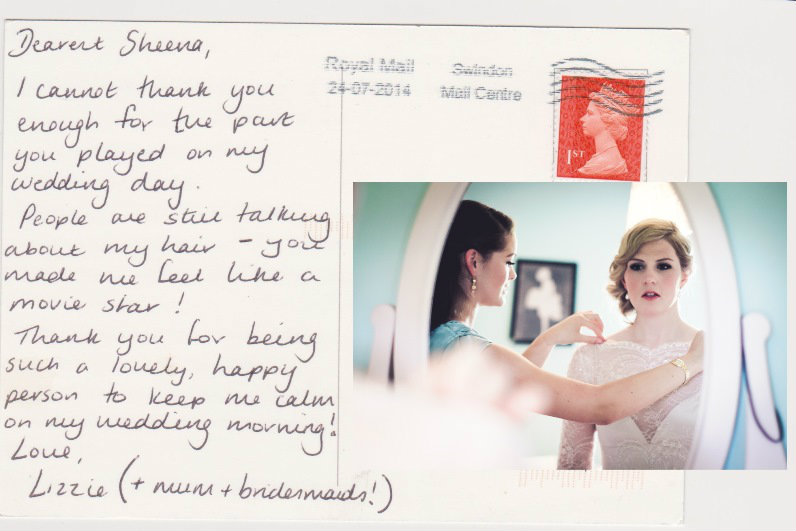 Dearest Sheena,
Royal Mail Swindon
24-07-2014 Mail Centre
1ST
I cannot thank you
enough for the part
you played on my
wedding day.
People are still talking
about my hair – you
made me feel like a
movie star!
Thank you for being
such a lovely, happy
person to keep me calm
on my wedding morning!
Love,
Lizzie (+ mum + bridesmaids!)